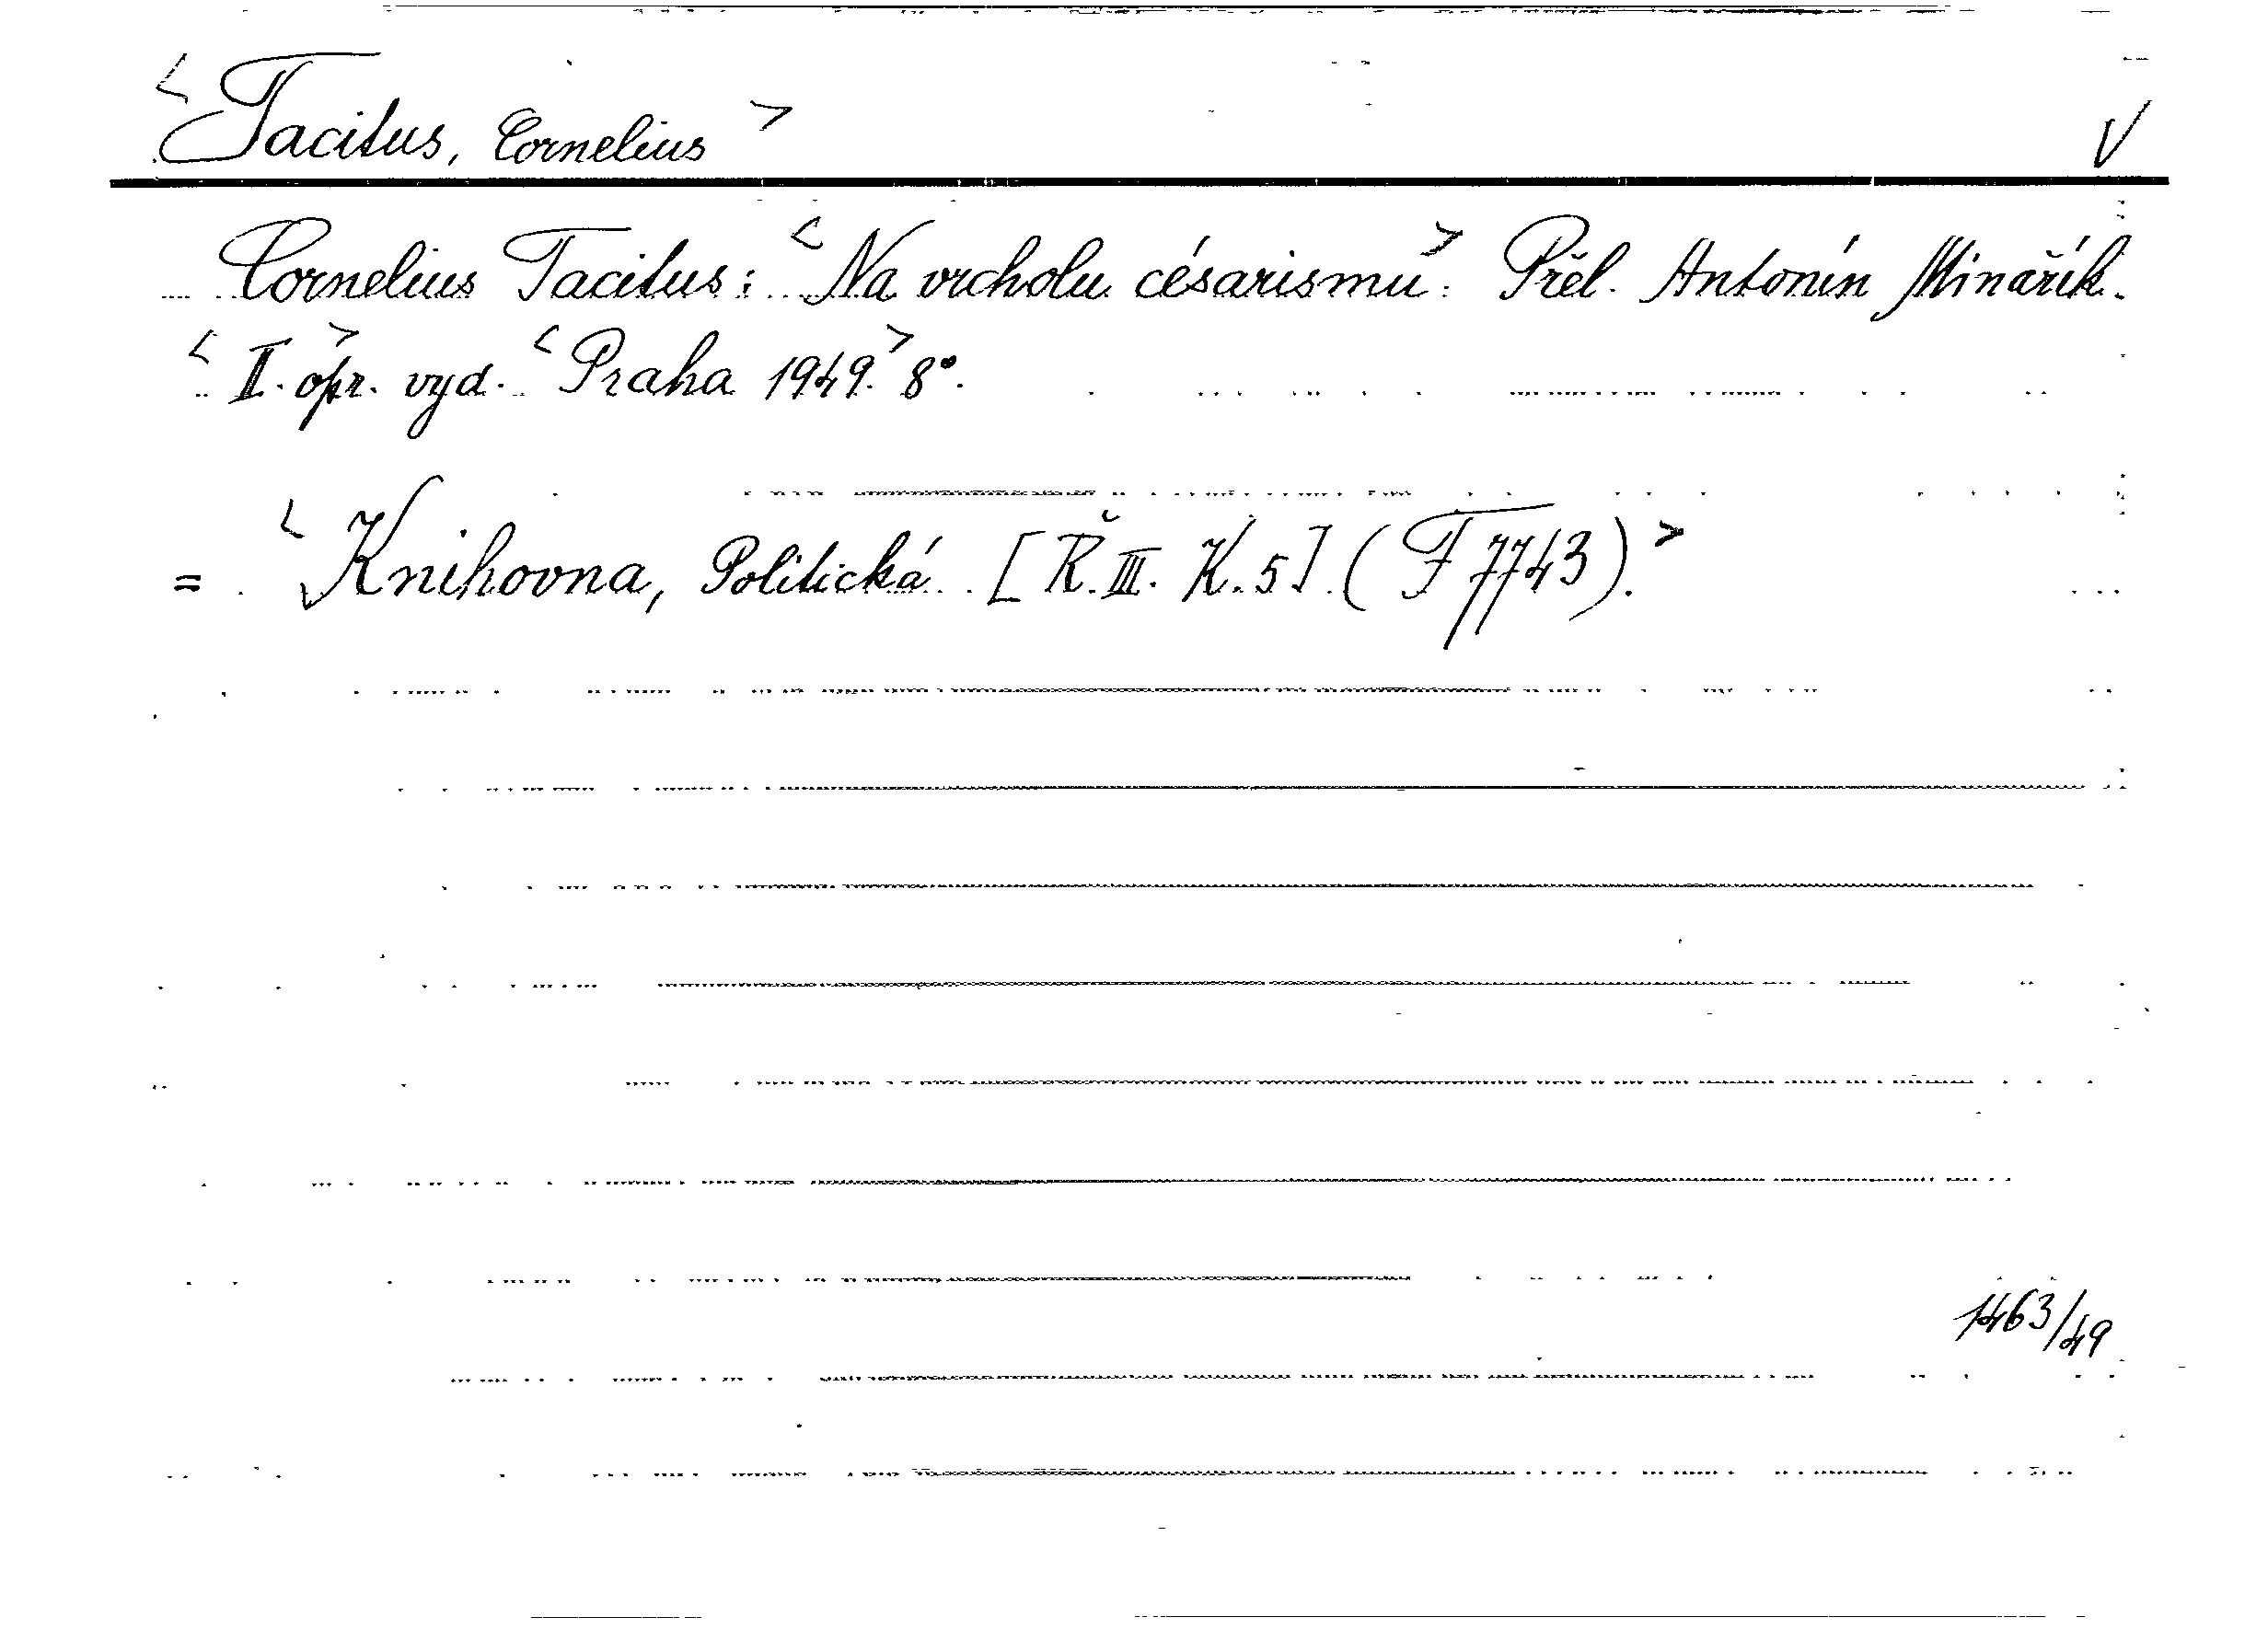 <Tacitus, Cornelius> V
Cornelius Tacitus: <Na vrcholu césarismu>. Přel. Antonín Minařík.
<II.> opr. vyd. <Praha 1949.> 8°.
= <Knihovna, Politická [Ř. III. K. 5] (F 7743).>
1463/49